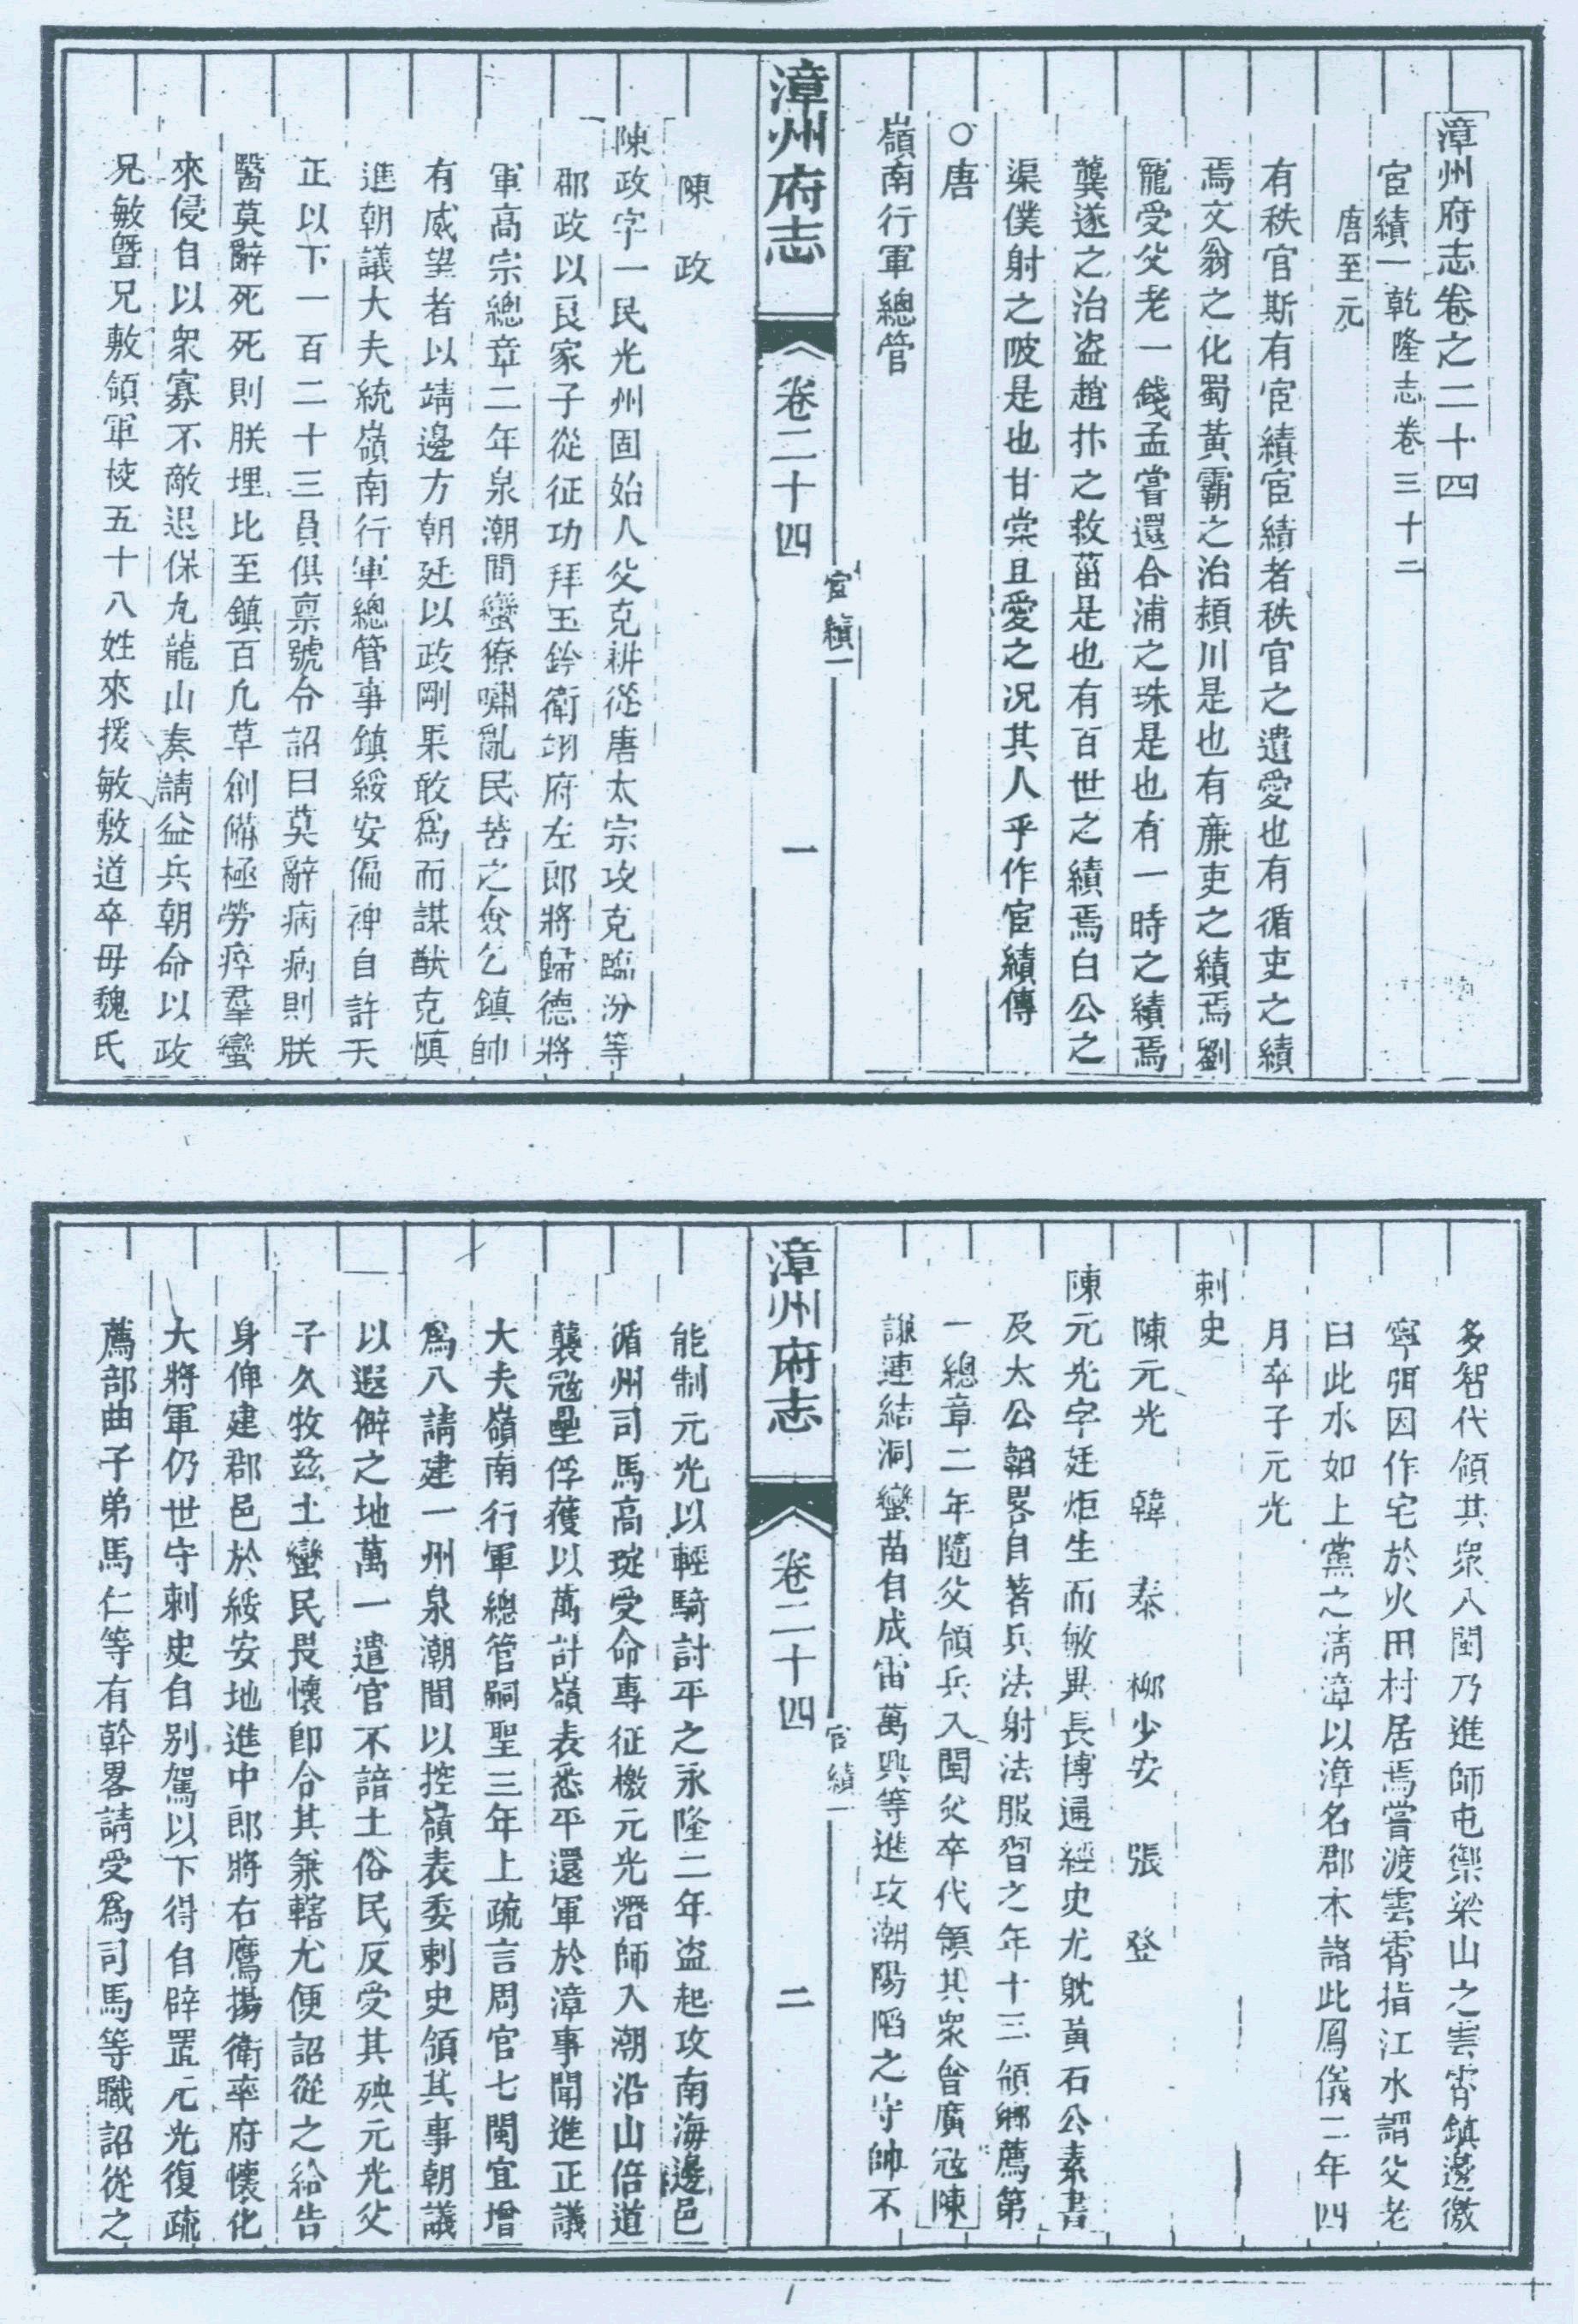 漳州府志卷之二十四
宦績一乾隆志卷三十二
唐至元
有秩官斯有宦績宦績者秩官之遺愛也有循吏之績
焉文翁之化蜀黃霸之治潁川是也有廉吏之績焉劉
寵受父老一錢孟嘗還合浦之珠是也有一時之績焉
龔遂之治盜趙抃之救菑是也有百世之績焉白公之
渠僕射之陂是也甘棠且愛之况其人乎作宦績傳
○唐
嶺南行軍總管
漳州府志
卷二十四
宦績一
一
陳政
陳政字一民光州固始人父克耕從唐太宗攻克臨汾等
郡政以良家子從征功拜玉鈐衛翊府左郎將歸德將
軍高宗總章二年泉潮間蠻獠嘯亂民苦之僉乞鎮帥
有威望者以靖邊方朝廷以政剛果敢爲而謀猷克慎
進朝議大夫統嶺南行軍總管事鎮綏安偏裨自許天
正以下一百二十三員俱禀號令詔曰莫辭病病則朕
醫莫辭死死則朕埋比至鎮百凡草創備極勞瘁羣蠻
來侵自以衆寡不敵退保九龍山奏請益兵朝命以政
兄敏暨兄敷領軍校五十八姓來援敏敷道卒母魏氏
多智代領其衆入閩乃進師屯禦梁山之雲霄鎮邊徼
寧弭因作宅於火田村居焉嘗渡雲霄指江水謂父老
曰此水如上黨之淸漳以漳名郡本諸此鳳儀二年四
月卒子元光
刺史
陳元光 韓泰 柳少安 張登
陳元光字廷炬生而敏異長博通經史尤躭黃石公素書
及太公韜畧自著兵法射法服習之年十三領鄉薦第
一總章二年隨父領兵入閩父卒代領其衆會廣寇陳
謙連結洞蠻苗自成雷萬興等進攻潮陽陷之守帥不
漳州府志
卷二十四
宦績一
二
能制元光以輕騎討平之永隆二年盜起攻南海邊邑
循州司馬高琔受命專征檄元光潛師入潮沿山倍道
襲寇壘俘獲以萬計嶺表悉平還軍於漳事聞進正議
大夫嶺南行軍總管嗣聖三年上疏言周官七閩宜增
爲八請建一州泉潮間以控嶺表委剌史領其事朝議
以遐僻之地萬一遣官不諳土俗民反受其殃元光父
子久牧茲土蠻民畏懷卽令其兼轄尤便詔從之給告
身俾建郡邑於綏安地進中郎將右鷹揚衛率府懷化
大將軍仍世守刺史自別駕以下得自辟置元光復疏
薦部曲子弟馬仁等有幹畧請受爲司馬等職詔從之